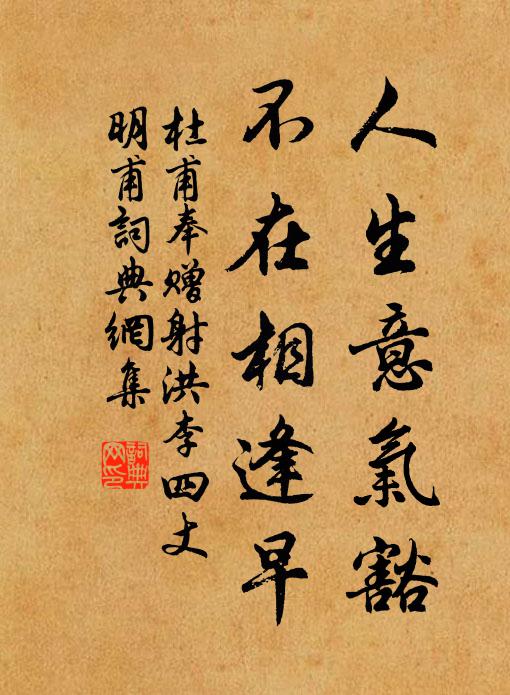 人生意氣豁
不在相逢早
杜甫奉贈射洪李四丈
明甫詞典網集
詞典
网印